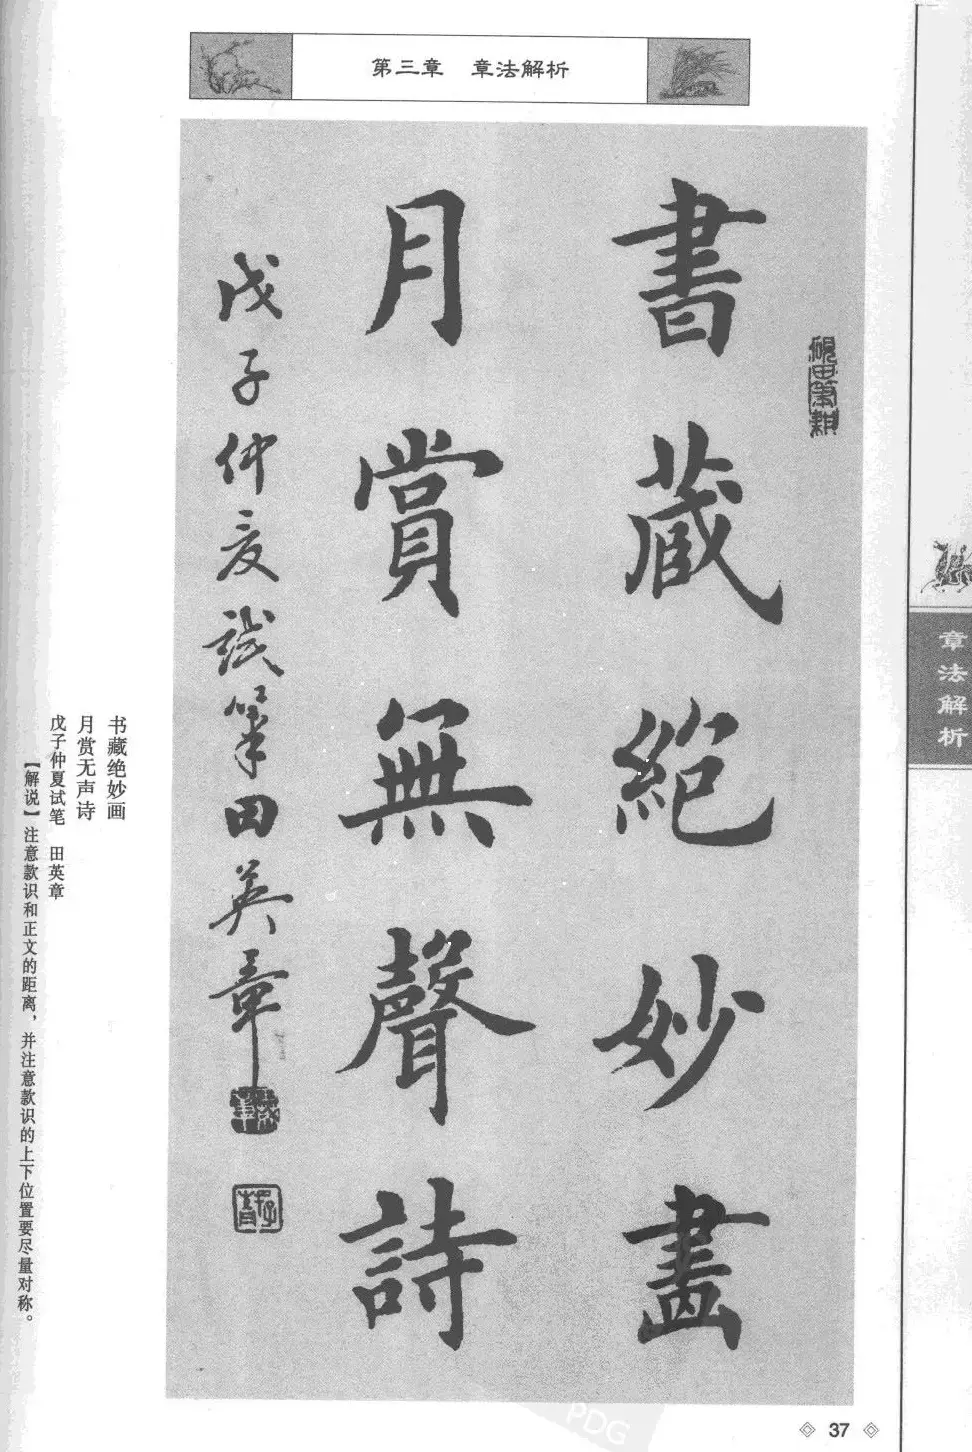 第三章 章法解析
書藏絕妙畫
月賞無聲詩
戊子仲夏試筆田英章
硯田筆耕
书藏绝妙画
月赏无声诗
戊子仲夏试笔 田英章
【解说】注意款识和正文的距离，并注意款识的上下位置要尽量对称。
章法解析
37
PDG